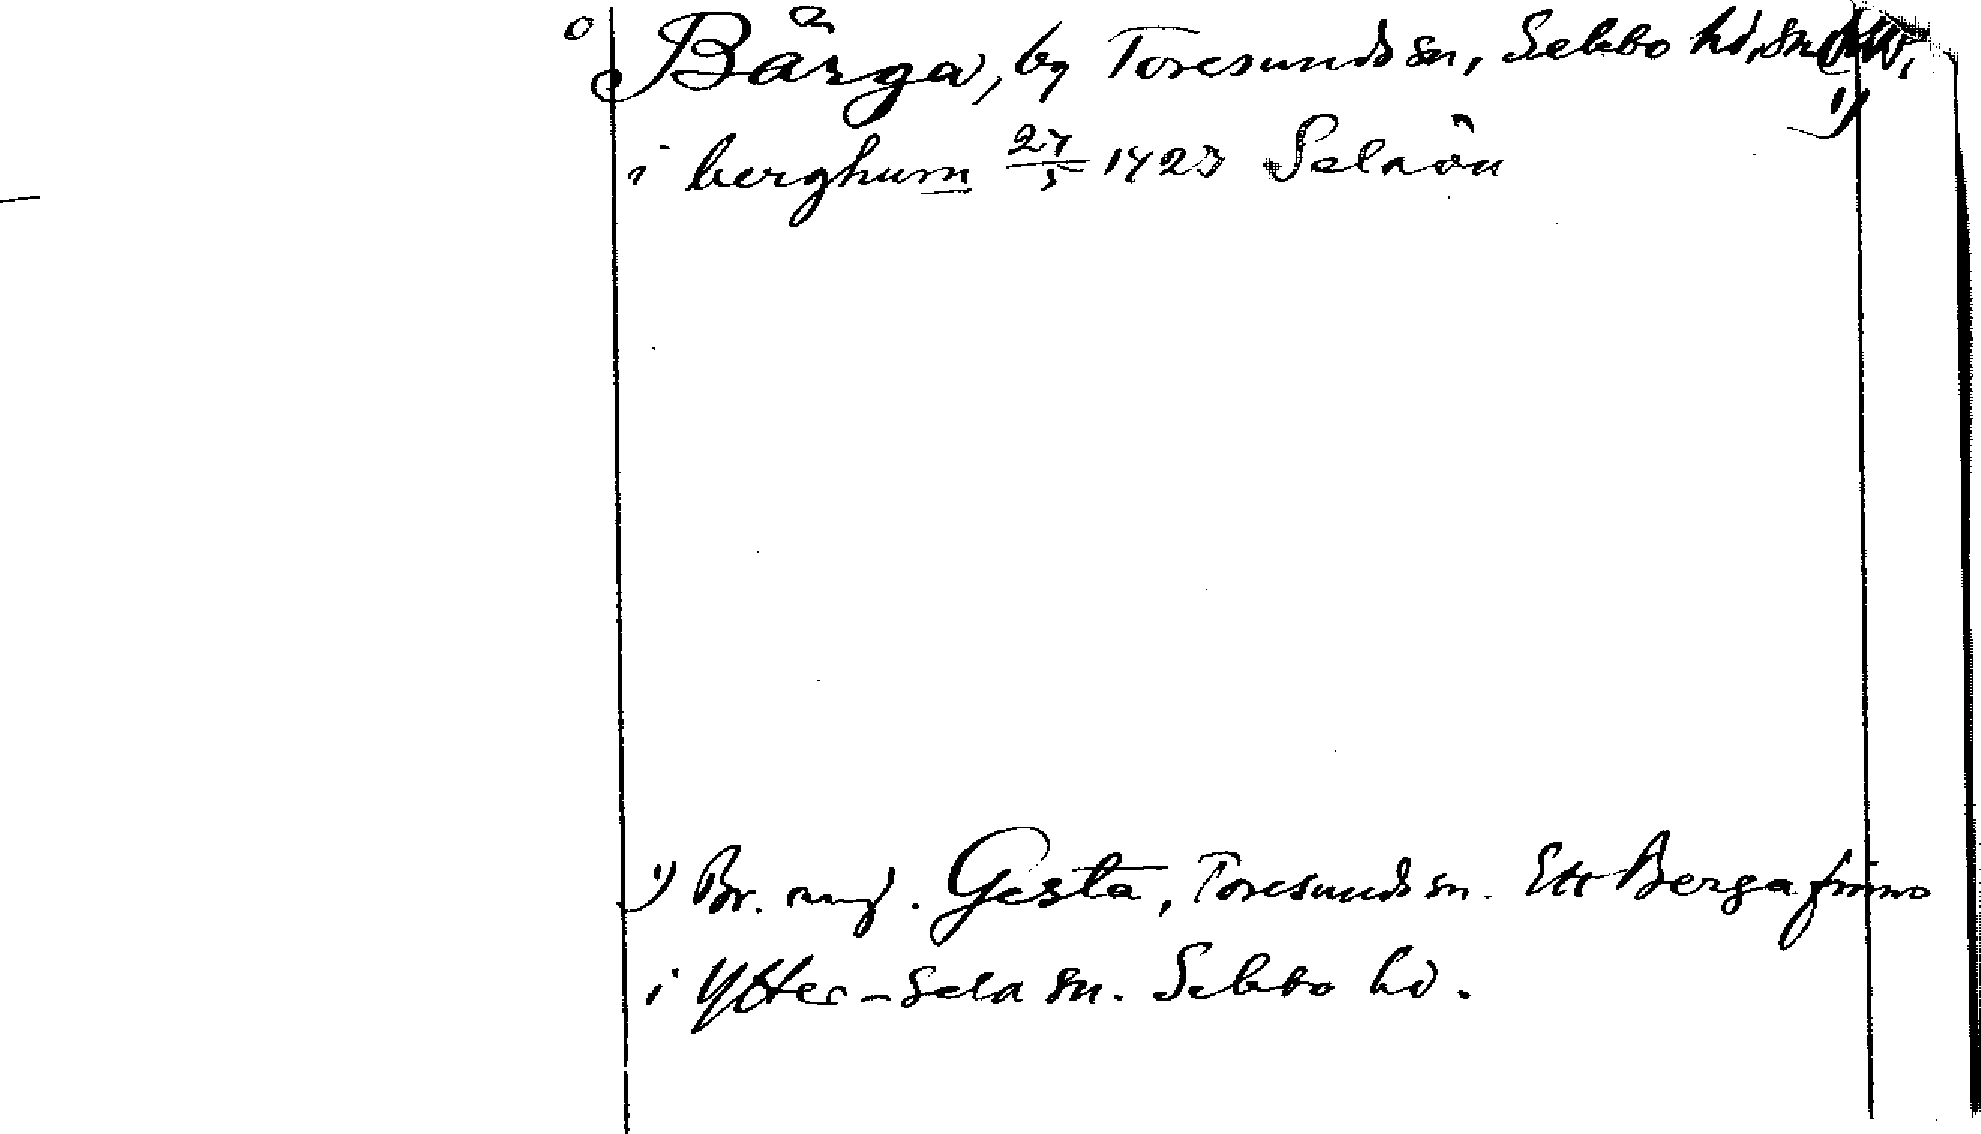 Bärga, by Toresunds sn, Selebo hd,
1)
i berghum 27/5 1423 Selaön
1) Br. Gesta, Toresunds sn. Ett Berga finns
i Ytter-Sela sn. Selebo hd.